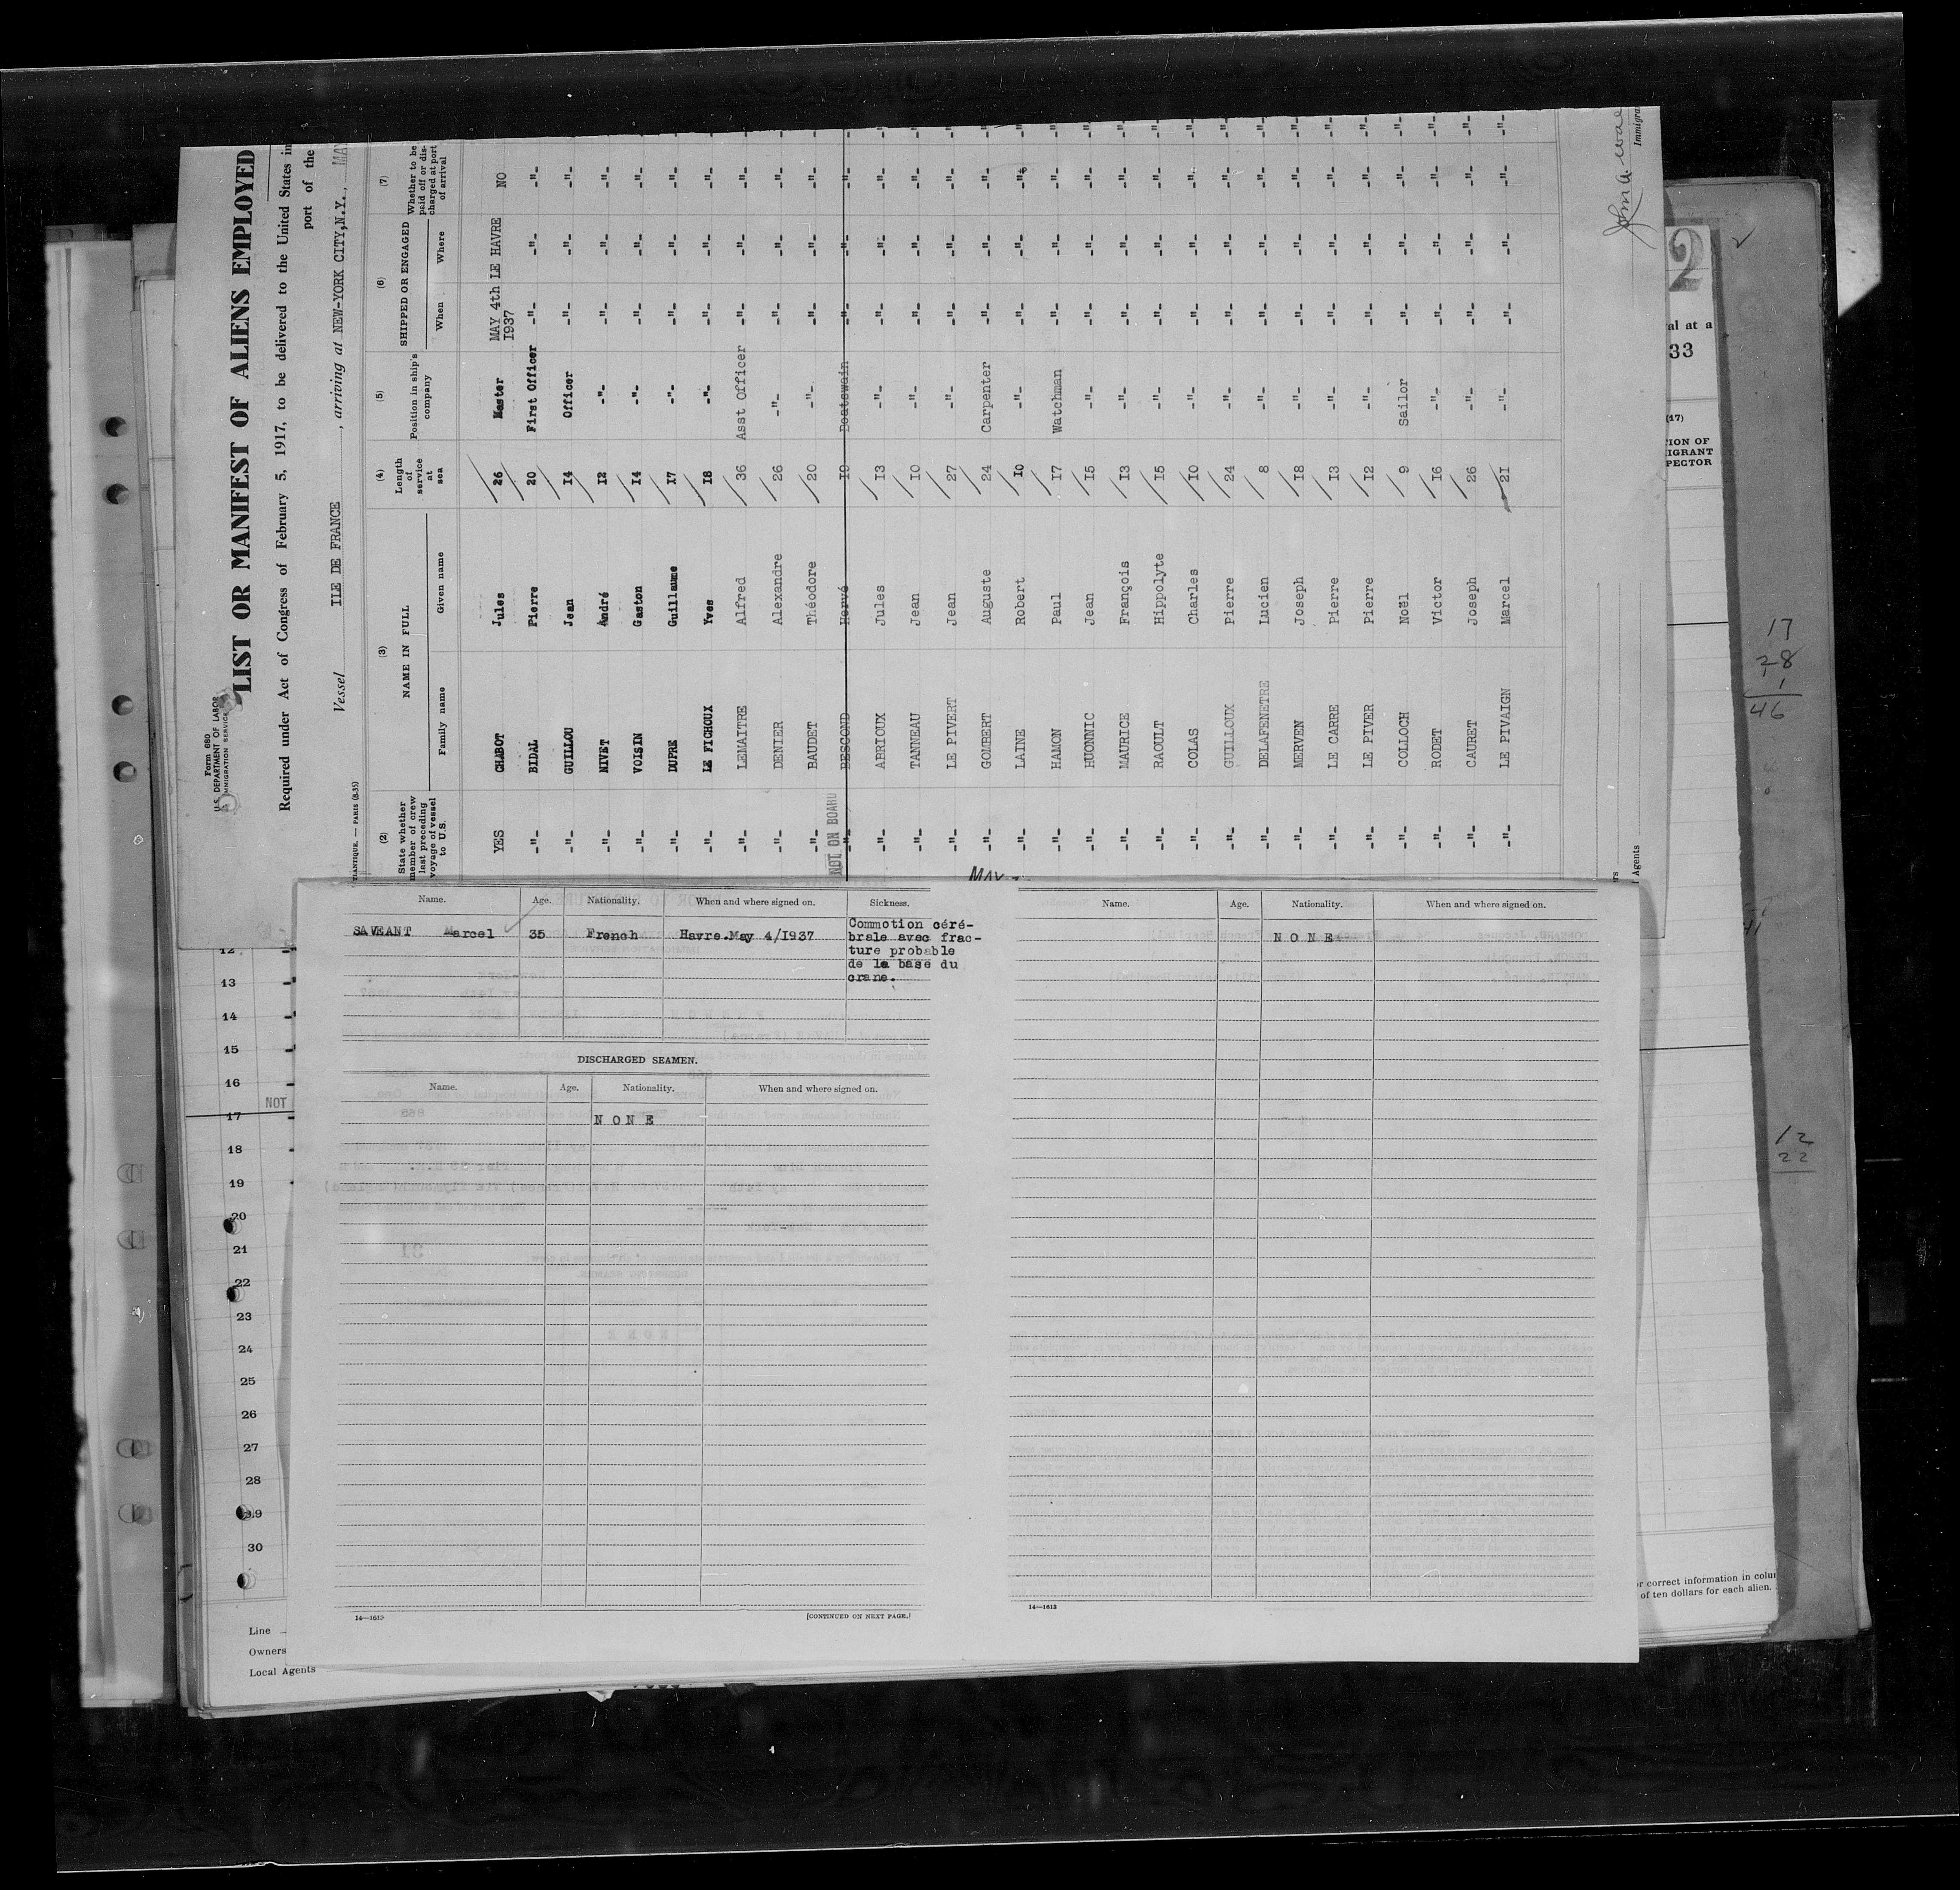 Form 680
U.S. DEPARTMENT OF LABOR
IMMIGRATION SERVICE
LIST OR MANIFEST OF ALIENS EMPLOYED
Required under Act of Congress of February 5, 1917, to be delivered to the United States
port of the
Vessel ILE DE FRANCE , arriving at NEW-YORK CITY,N.Y., MAY
PARIS (8-35)
(2) (3) (4) (5) (6) (7)
State whether member of crew last preceding voyage of vessel to U.S.
NAME IN FULL
Family name Given name
Length of service at sea
Position in ship's company
SHIPPED OR ENGAGED
When Where
Whether to be paid off or discharged at port of arrival
YES CHABOT Jules 26 Master MAY 4th I937 LE HAVRE NO
-"- BIDAL Pierre 20 First Officer -"- -"- -"-
-"- GUILLOU Jean I4 Officer -"- -"- -"-
-"- NIVET André I2 -"- -"- -"- -"-
-"- VOISIN Gaston I4 -"- -"- -"- -"-
-"- DUPRE Guillaume I7 -"- -"- -"- -"-
-"- LE FICHOUX Yves I8 -"- -"- -"- -"-
-"- LEMAITRE Alfred 36 Asst Officer -"- -"- -"-
-"- DENIER Alexandre 26 -"- -"- -"- -"-
-"- BAUDET Théodore 20 -"- -"- -"- -"-
NOT ON BOARD
-"- BESCOND Hervé I9 Boatswain -"- -"- -"-
-"- ABRIOUX Jules I3 -"- -"- -"- -"-
-"- TANNEAU Jean I0 -"- -"- -"- -"-
-"- LE PIVERT Jean 27 -"- -"- -"- -"-
-"- GOMBERT Auguste 24 Carpenter -"- -"- -"-
-"- LAINE Robert I0 -"- -"- -"- -"-
-"- HAMON Paul I7 Watchman -"- -"- -"-
-"- HUONNIC Jean I5 -"- -"- -"- -"-
-"- MAURICE François I3 -"- -"- -"- -"-
-"- RAOULT Hippolyte I5 -"- -"- -"- -"-
-"- COLAS Charles I0 -"- -"- -"- -"-
-"- GUILLOUX Pierre 24 -"- -"- -"- -"-
-"- DELAFENETRE Lucien 8 -"- -"- -"- -"-
-"- MERVEN Joseph I8 -"- -"- -"- -"-
-"- LE CARRE Pierre I3 -"- -"- -"- -"-
-"- LE PIVER Pierre I2 -"- -"- -"- -"-
-"- COLLOCH Noël 9 Sailor -"- -"- -"-
-"- RODET Victor I6 -"- -"- -"- -"-
-"- CAURET Joseph 26 -"- -"- -"- -"-
-"- LE PIVAIGN Marcel 2I -"- -"- -"- -"-
Agents
John A.
2
al at a
33
(17)
ION OF
IGRANT
PECTOR
17
28
1
46
12
22
Name. Age. Nationality. When and where signed on. Sickness.
SAVEANT Marcel 35 French Havre.May 4/I937 Commotion céré-
brale avec frac-
ture probable
de la base du
crane.
DISCHARGED SEAMEN.
Name. Age. Nationality. When and where signed on.
N O N E
14—1613
[CONTINUED ON NEXT PAGE.]
Name. Age. Nationality. When and where signed on.
N O N E
14—1613
12
13
14
15
16
NOT
17
18
19
20
21
22
23
24
25
26
27
28
29
30
Line
Owners
Local Agents
or correct information in colu
of ten dollars for each alien.